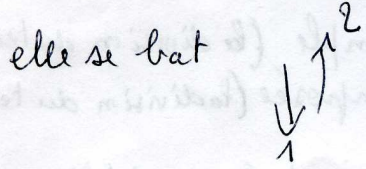 elle se bat
2
1